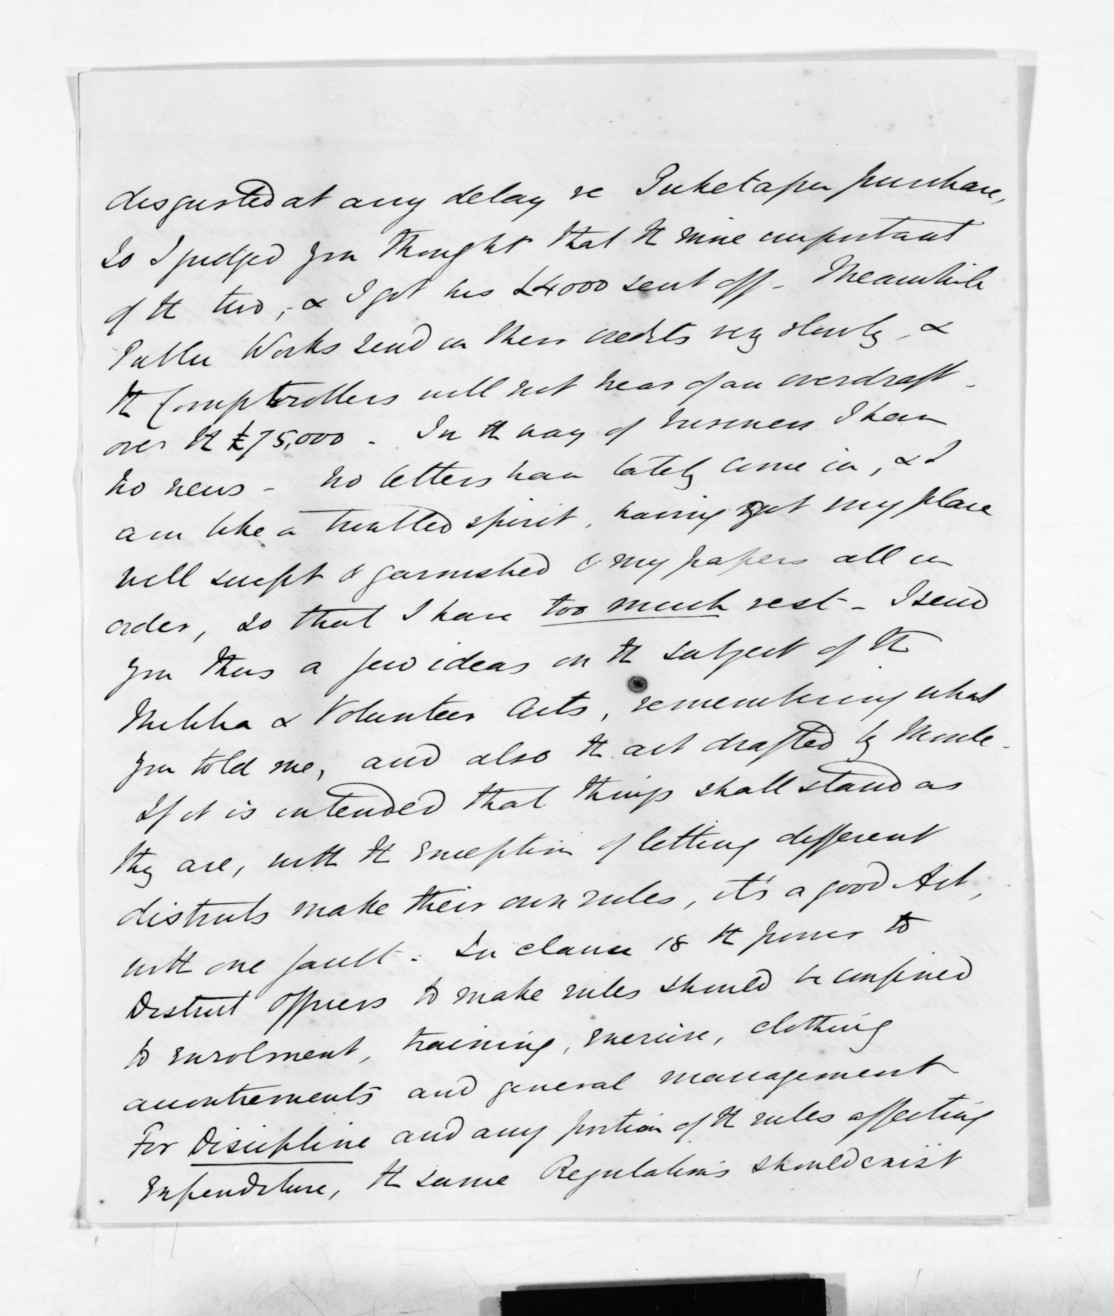 disgusted at any delay re Puketapu purchase,
so I judged you thought that the more important
of the two, & I got his £4000 sent off - Meanwhile
Public Works send in their credits very slowly, &
the Comptrollers will not hear of an overdraft -
over the £75,000 - In the way of business I have
no news - No letters have lately come in, & I
am like a troubled spirit, having got my place
well swept & garnished & my papers all in
order, so that I have too much rest - I send
you thus a few ideas on the subject of the
Militia & Volunteer Acts, remembering what
you told me, and also the act drafted by Moule -
If it is intended that things shall stand as
they are, with the exception of letting different
districts make their own rules, it's a good Act,
with one fault - In clause 18 the power to
District Officers to make rules should be confined
to enrolment, training, exercise, clothing
accoutrements and general management
For Discipline and any portion of the rules affecting
Expenditure, the same Regulations should exist